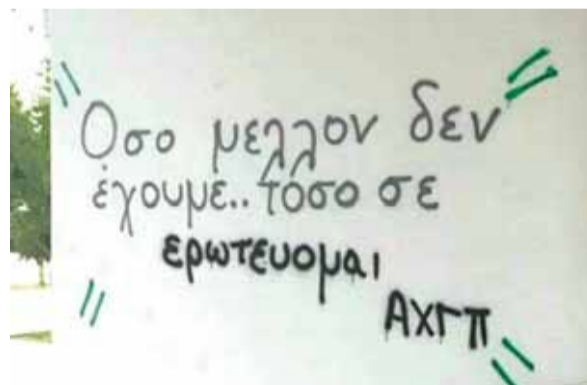 Οσο μελλον δεν
έχουμε.. τόσο σε
ερωτευομαι
Αχγπ